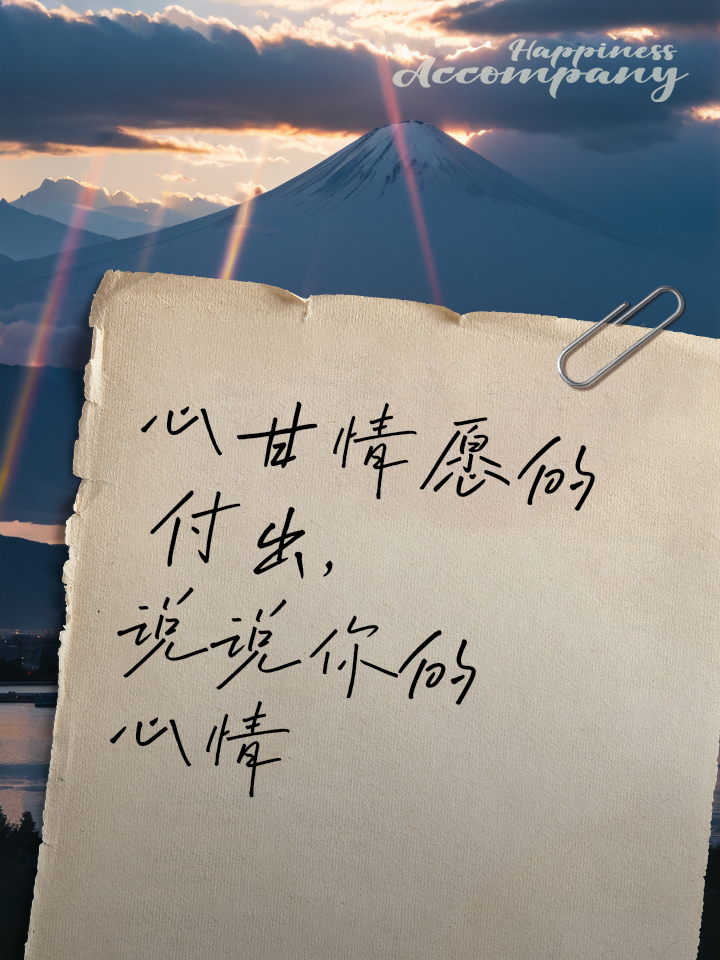 Happiness
Accompany
心甘情愿的
付出，
说说你的
心情